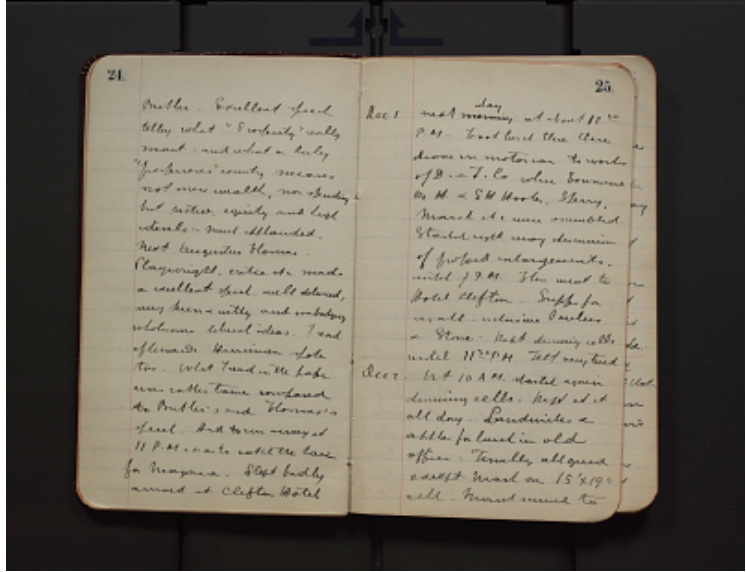 24
Butler. Excellent speech
telling what "Prosperity" really
meant - and what a truly
"prosperous" country means
not mere wealth, nor spending
but justice, equity and high
ideals - much applauded.
Next Augustus Thomas.
Playwright, critic etc made
a excellent speech, well delivered,
very keen & witty and embodying
wholesome liberal ideas. I and
afterwards Harriman spoke
too. What I read in the paper
was rather tame compared
to Butler's and Thomas's
speech. Had to run away at
11 P.M. so as to catch the train
for Niagara. Slept badly
arrived at Clifton Hotel
25
Dec 1 next morning day at about 12
P.M. Took lunch there then
drove in motorcar to works
of D. & F. Co where Townsend
H & E H Hooker, Sperry,
Marsh etc were assembled.
Started right away discussion
of proposed enlargements.
until 7 P.M. Then went to
Hotel Clifton. Supper for
us all - inclusive
& Stone. Kept discussing cells
until 11 P.M. Felt very tired
Dec 2. At 10 A.M. started again
discussing cells. Kept at it
all day. Sandwiches &
apples for lunch in old
office. Finally all agreed
except Marsh on 15'
cell. Marsh